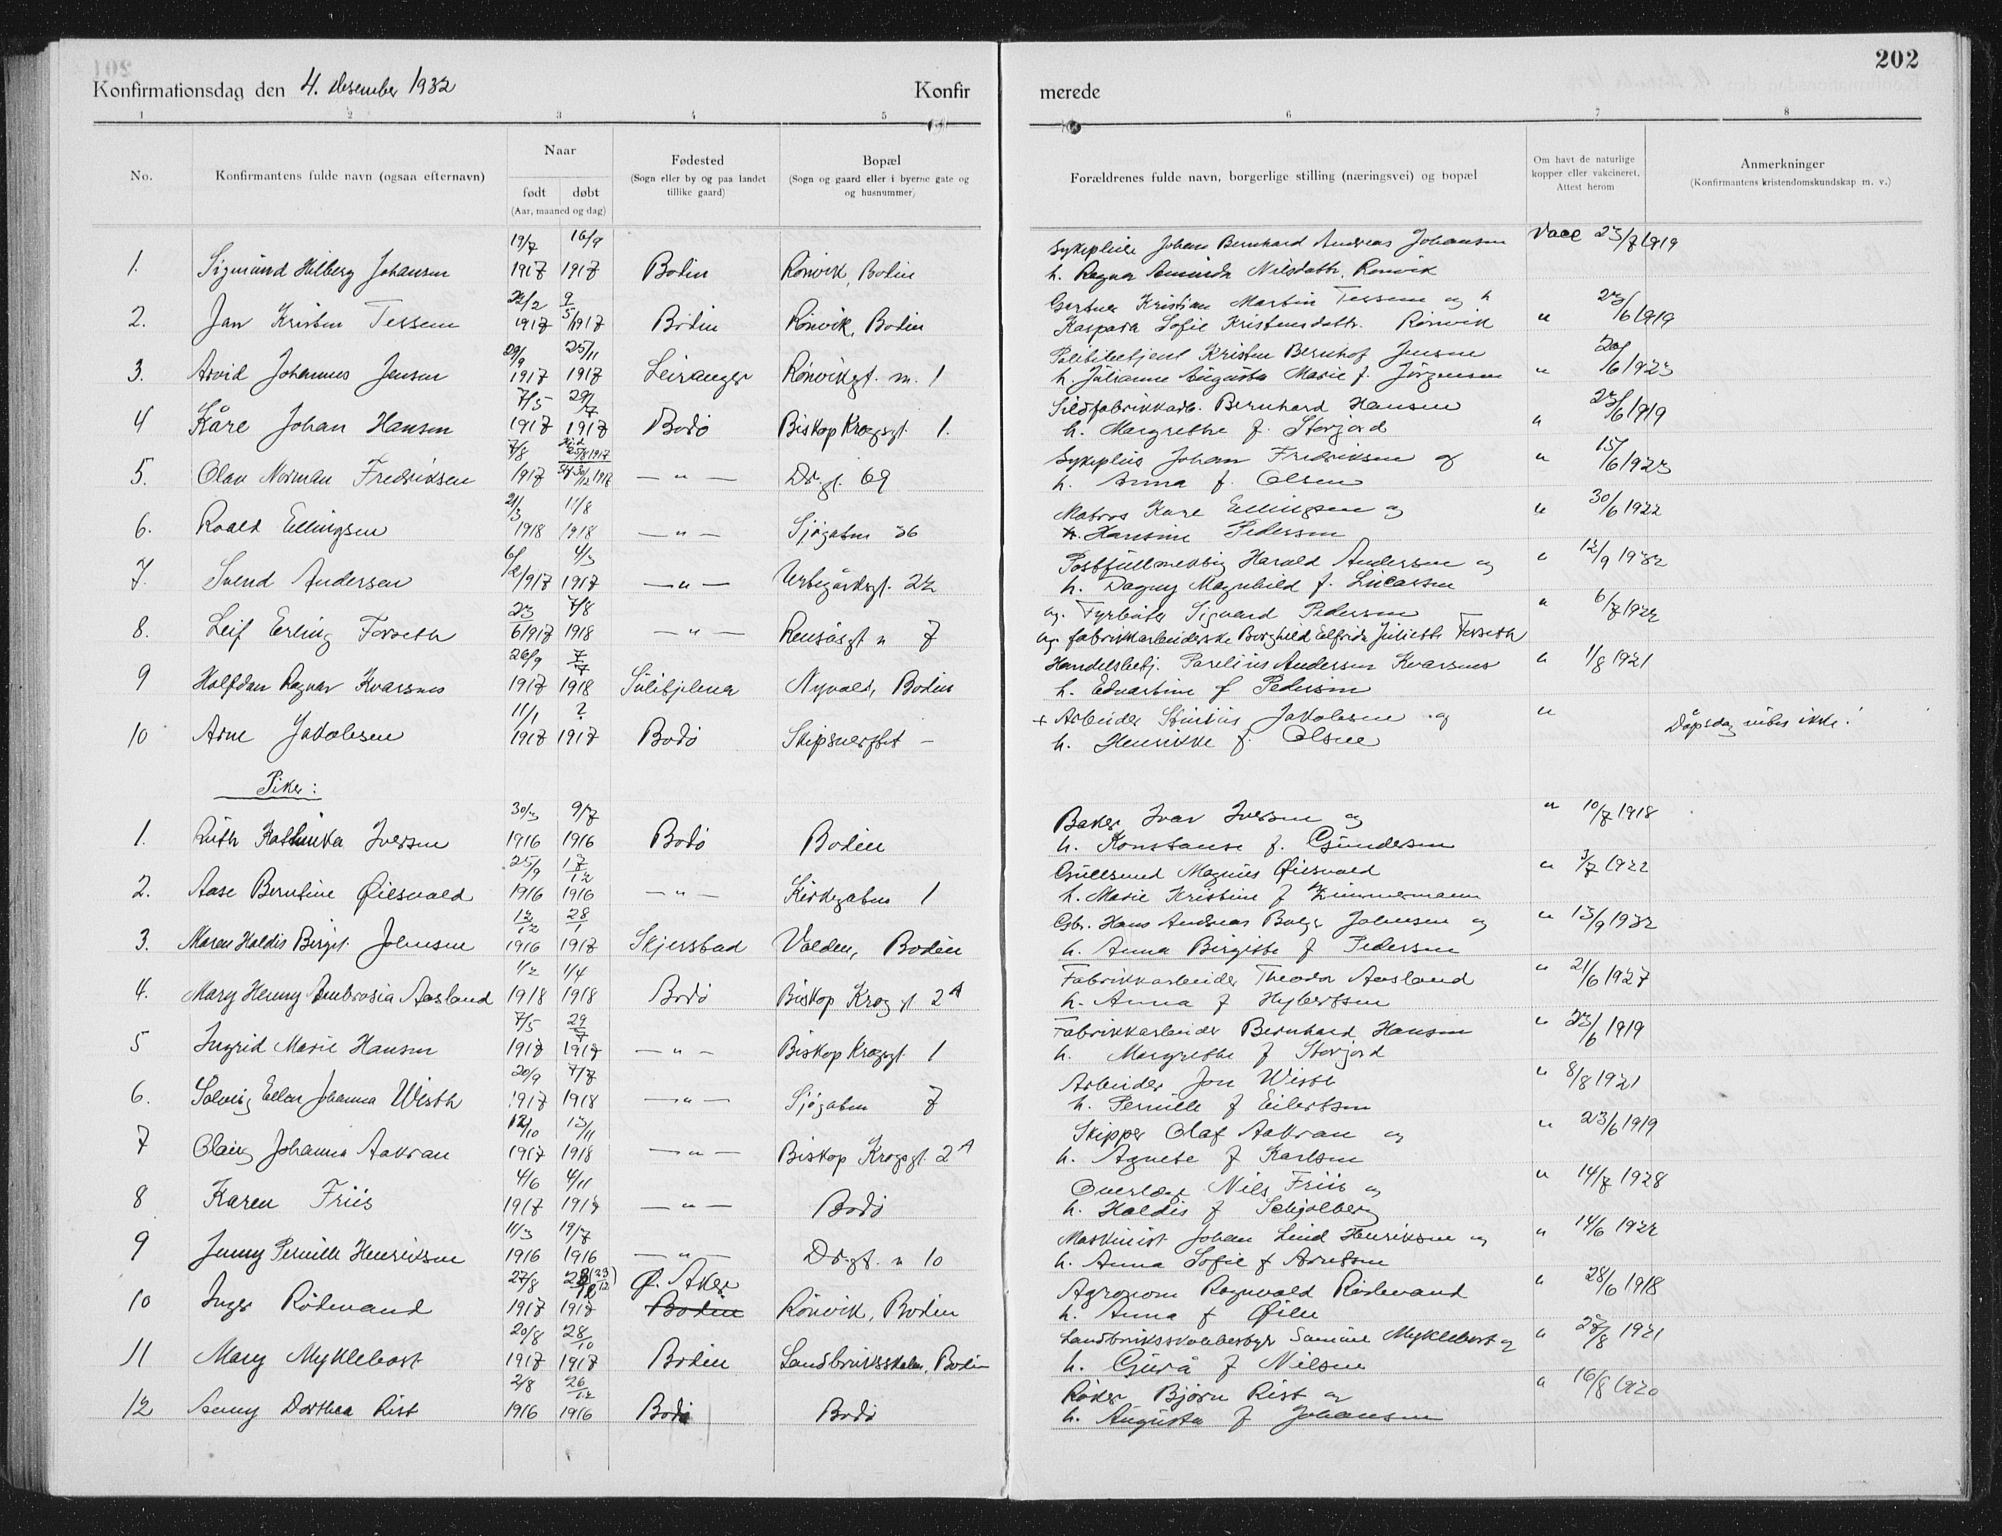 202
Konfirmationsdag den 4. desember 1932 Konfir merede
1 2 3 4 5 6 7 8
No. Konfirmantens fulde navn (ogsaa efternavn) Naar født døbt (Aar, maaned og dag) Fødested (Sogn eller by og paa landet tillike gaard) Bopæl (Sogn og gaard eller i byerne gate og og husnummer) Forældrenes fulde navn, borgerlige stilling (næringsvei) og bopæl Om havt de naturlige kopper eller vakcineret. Attest herom Anmerkninger (Konfirmantens kristendomskundskap m. v.)
19/7 16/9 Sykepleier Johan Bernhard Andreas Johansen Vacc 23/7 1919
1. Sigmund Hilberg Johansen 1917 1917 Bodin Rønvik, Bodin h. Ragna Nilsdattr, Rønvik
22/2 9/5 Gartner Kristian Martin Tessem og h
2. Jan Kristen Tessem 1917 1917 Bodin Rønvik, Bodin Kaspara Sofie Kristensdattr. Rønvik " 23/6 1919
29/9 25/11 Politibetjent Kristen Bernhof Jensen
3. Arvid Johannes Jensen 1917 1917 Leiranger Rønvikgt. n. 1 h. Julianne Augusta Marie f. Jørgensen " 20/6 1923
7/5 29/7 Sildfabrikkarb. Bernhard Hansen
4 Kåre Johan Hansen 1917 1917 Bodø Biskop Krogsgt 1. h. Margrethe f. Storjord " 23/6 1919
7/8 25/8 1917 Sykepleier Johan Fredriksen og " 15/6 1923
5. Olav Norman Fredriksen 1917 30/12 1918 — " — Dr.gt. 69 h. Anna f. Olsen
21/3 11/8 Matros Kare Ellingsen og " 30/6 1922
6. Roald Ellingsen 1918 1918 — " — Sjøgaten 36 h. Hansine Pedersen
6/2 4/3 Postfullmektig Harald Andersen og " 12/9 1932
7. Svend Andersen 1917 1917 — " — 22 h. Dagny Magnhild f. Lucassen
23 7/8 ug. Fyrbøter Sigvard Pedersen " 6/7 1922
8. Leif Erling Forseth 6/1917 1918 — " — Rensåsgt n 7 ug. fabrikkarbeiderske Borghild Elfrida Juliette Forseth
26/9 7/7 Handelsbetj. Parelius Andersen Kvarsnes " 1/8 1921
9 Halfdan Ragnar Kvarsnes 1917 1918 Sulitjelma Nyvold, Bodin h. Edvartine f Pedersen
11/1 ? + Arbeider Jakobsen og " Dåpsdag vites ikke!
10 Arne Jakobsen 1917 1917 Bodø Skipsverftet — h. Henrikke f. Olsen
Piker:
30/3 9/7 Baker Ivar Iversen og " 10/7 1918
1. Ruth Kathinka Iversen 1916 1916 Bodø Bodin h. Konstanse f. Gundersen
25/9 17/12 Gullsmed Magnus Øiesvold " 3/7 1922
2. Aase Berntine Øiesvold 1916 1916 — " — Kirkegaten 1 h. Marie Kristine f Zimmermann
12/12 28/1 Gbr. Hans Andreas Johnsen og " 13/9 1932
3. Maren Haldis Birgit. Johnsen 1916 1917 Skjerstad Valden, Bodin h. Anna Birgitte f Pedersen
1/2 1/4 Fabrikkarbeider Theodor Aasland " 21/6 1927
4. Mary Henny Ambrosia Aasland 1918 1918 Bodø Biskop Krog gt 2 A h. Anna f Hybertsen
7/5 29/7 Fabrikkarbeider Bernhard Hansen " 23/6 1919
5 Ingrid Marie Hansen 1917 1917 — " — Biskop Krogsgt. 1 h. Margrethe f Storjord
20/9 7/7 Arbeider Jon Wisth " 8/8 1921
6. Solveig Ellen Johanna Wisth 1917 1918 — " — Sjøgaten 7 h. Pernille f Eilertsen
12/10 13/11 Skipper Olaf Aakran og " 23/6 1919
7 Johanna Aakran 1917 1918 — " — Biskop Krogsgt. 2 A h. Agnete f Karlsen
4/6 4/11 Overlæge Nils Friis og " 14/7 1928
8 Karen Friis 1917 1917 — " — Bodø h. Haldis f Schjølberg
11/3 19/7 Maskinist Johan Lind Henriksen og " 14/6 1922
9 Jenny Pernille Henriksen 1916 1916 — " — Dr.gt. n 10 h. Anna Sofie f Arntsen
27/8 (23/12) Ø. Aker Agronom Ragnvald Rødevand " 28/6 1918
10 Inger Rødevand 1917 1917 Bodin Rønvik, Bodin h. Anna f Øien
20/8 28/10 Landbruksskolebestyr Samuel Myklebost og " 27/8 1921
11 Mary Myklebost 1917 1917 Bodin Landbruksskolen, Bodin h. Gurå f Nilsen
2/8 26/12 Bjørn Rist og " 16/8 1920
12 Dorthea Rist 1916 1916 Bodø Bodø h. Augusta f Johansen